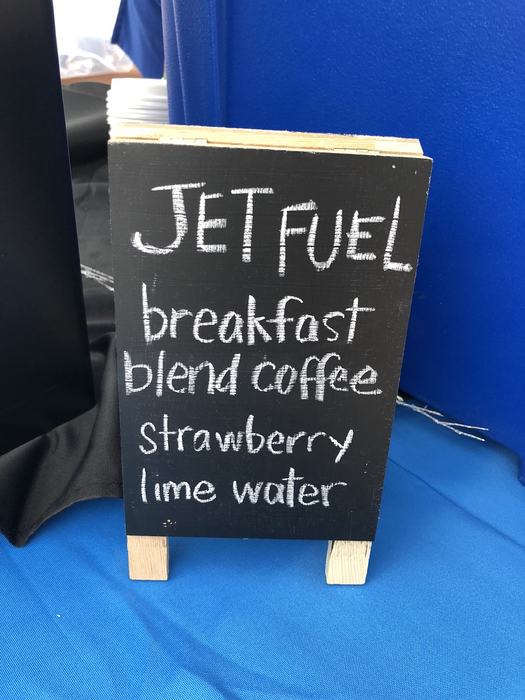 JET FUEL
breakfast
blend coffee
strawberry
lime water